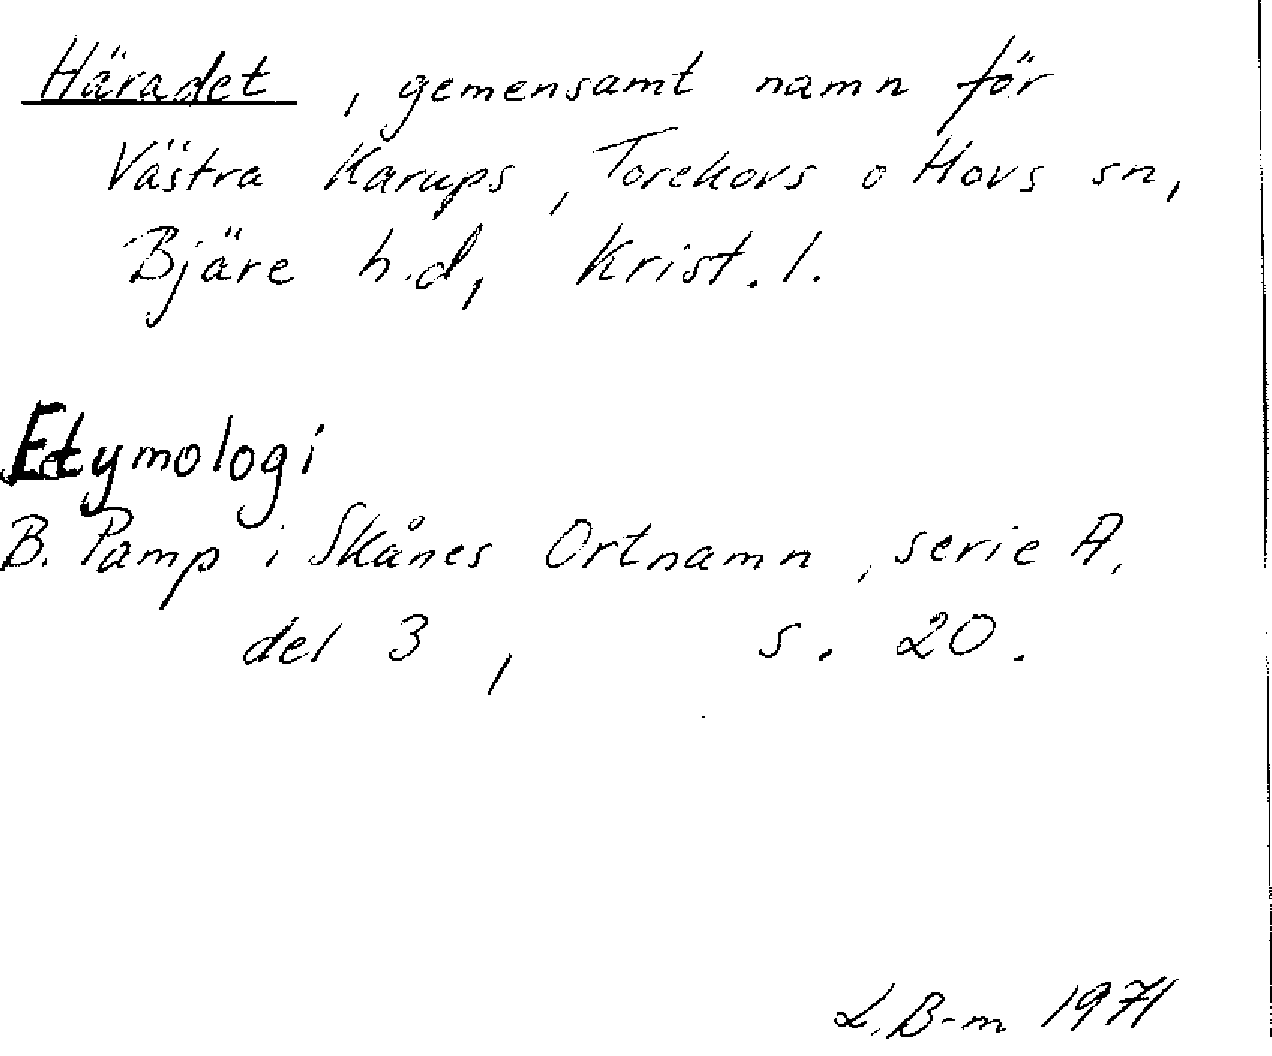 Häradet, gemensamt namn för
Västra Karups, Torekovs o Hovs sn,
Bjäre h.d, Krist. l.
Etymologi
B. Pamp i Skånes Ortnamn, serie A,
del 3, s. 20.
L. B-m 1971